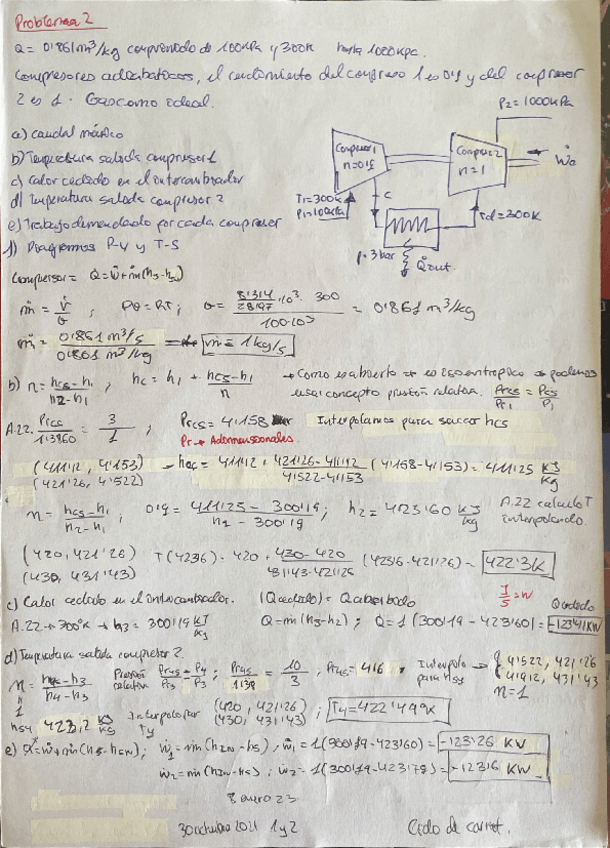 Problema 2
Q = 0'861m³/kg comprimido de 100KPa y 300K hasta 1000KPa.
Compresores adiabáticos, el rendimiento del compresor 1 es 0'9 y del compresor
2 es 1. Gas como ideal.
P2 = 1000KPa
a) caudal másico
b) Temperatura salida compresor 1
c) Calor cedido en el intercambiador
d) Temperatura salida compresor 2
e) Trabajo demandado por cada compresor
f) Diagramas P-V y T-S
Compresor 1
n=0'9
Compresor 2
n=1
T1=300K
P1=100KPa
c
Td=300K
P=3bar
Qout.
ṁ = V/υ ; Pυ = RT ; υ = (8'314/28'97 ·10³ · 300)/(100·10³) = 0'861 m³/kg
ṁ = (0'861 m³/s)/(0'861 m³/kg) → ṁ = 1 kg/s
b) n = (hcs-h1)/(h2-h1) , hc = h1 + (hcs-h1)/n
usar concepto presión relativa. Prcs/Pr1 = Pcs/P1
A.22. Prcs/1'3860 = 3/1 ; Prcs = 4'158 Interpolamos para sacar hcs
Pr → Adimensionales
(411'12, 4'153)
(421'26, 4'522)
hcs = 411'12 + (421'26-411'12)/(4'522-4'153) (4'158-4'153) = 411'25 KJ/kg
n = (hcs-h1)/(h2-h1) ; 0'9 = (411'25 - 300'19)/(h2 - 300'19) ; h2 = 423'60 KJ/kg A.22 calculo T
interpolando.
(420, 421'26)
(430, 431'43)
422'3K
c) Calor cedido en el intercambiador. |Qcedido| = Qabsorbido
J/s = W
Qcedido
A.22 → 300K → h3 = 300'19 KJ/kg Q = ṁ(h3-h2) ; Q = 1(300'19 - 423'60) = -123'41 KW
d) Temperatura salida compresor 2.
n = (h4s-h3)/(h4-h3) Presión relativa Pr4s/Pr3 = P4/P3 ; Pr4s/1'38 = 10/3 ; Pr4s = 4'6
Interpolo para hs4
4'522, 421'26
4'912, 431'43
n=1
Interpolo por T4
(420, 421'26)
(430, 431'43) ; T4=422'49K
Ẇ1 = 1(300'19-423'60) = -123'26 KW
-123'6 KW
8 enero 23
30 octubre 2021 1 y 2
Ciclo de carnot.